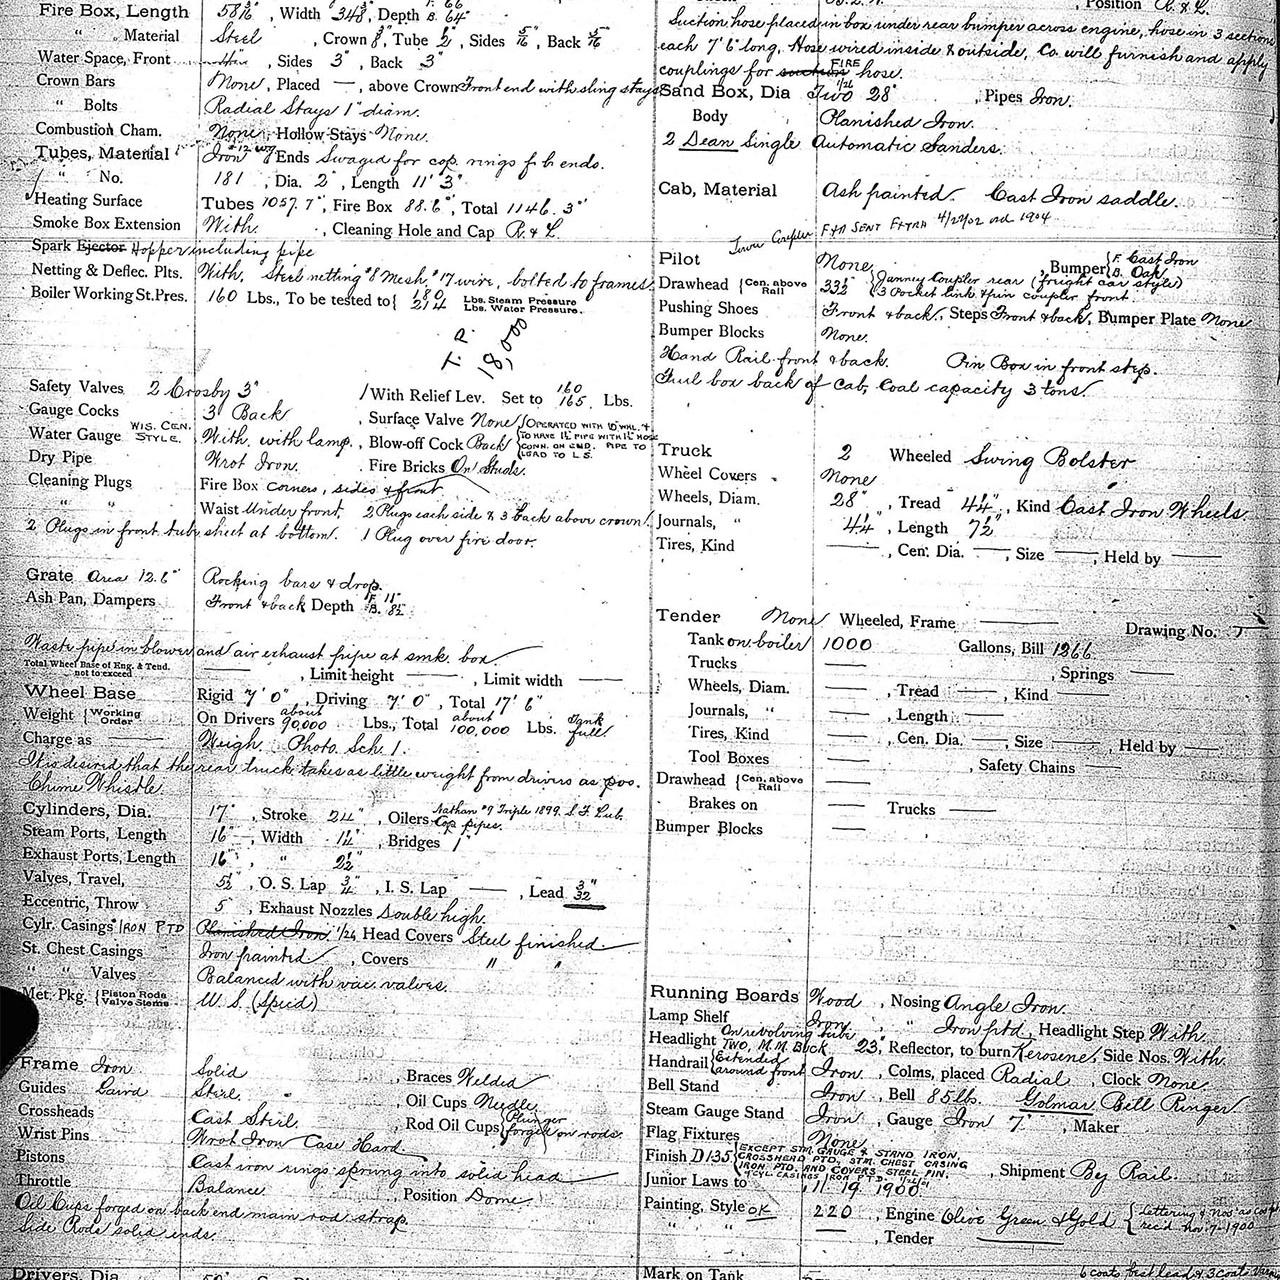 Fire Box, Length 58 3/16", Width 34 3/8", Depth F. 66 B. 64"
" " Material Steel, Crown 3/8", Tube 1/2", Sides 5/16", Back 5/16"
Water Space, Front, Sides 3", Back 3"
Crown Bars None, Placed —, above Crown Front end with sling stays
" Bolts Radial Stays 1" diam.
Combustion Cham. None, Hollow Stays None.
Tubes, Material Iron #12 W.G. Ends Swaged for cop. rings f. b. ends.
" No. 181, Dia. 2", Length 11' 3"
Heating Surface Tubes 1057.7", Fire Box 88.6", Total 1146.3"
Smoke Box Extension With., Cleaning Hole and Cap R. & L.
Spark Ejector Hopper including pipe
Netting & Deflec. Plts. With. Steel netting #8 Mesh, #17 wire, bolted to frames.
Boiler Working St. Pres. 160 Lbs., To be tested to { 180 Lbs. Steam Pressure 214 Lbs. Water Pressure.
T. P. 18,000
Safety Valves 2 Crosby 3" With Relief Lev. Set to 160 165 Lbs.
Gauge Cocks 3 Back, Surface Valve None { OPERATED WITH
Water Gauge WIS. CEN. STYLE. With, with lamp., Blow-off Cock Back TO HAVE 1½" PIPE WITH 1½" HOSE CONN. ON END. PIPE TO LEAD TO L S.
Dry Pipe Wrot Iron. Fire Bricks On Studs.
Cleaning Plugs Fire Box corners, sides & front
" " Waist Under front. 2 Plugs each side & 3 back above crown.
2 Plugs in front tube sheet at bottom. 1 Plug over fire door.
Grate Area 12.6" Rocking bars & drop.
Ash Pan, Dampers Front & back Depth F. 11" B. 8½"
Waste pipe in blower and air exhaust pipe at smk. box.
Total Wheel Base of Eng. & Tend. not to exceed —, Limit height —, Limit width —
Wheel Base Rigid 7' 0", Driving 7' 0", Total 17' 6"
Weight { Working Order On Drivers about 90,000 Lbs., Total about 100,000 Lbs. Tank full.
Charge as — Weigh. Photo. Sch. 1.
It is desired that the rear truck takes as little weight from drivers as pos.
Chime Whistle.
Cylinders, Dia. 17", Stroke 24", Oilers Nathan #9 Triple 1899. S. F. Lub. Cop pipes.
Steam Ports, Length 16", Width 1¼", Bridges 1"
Exhaust Ports, Length 16", " 2½"
Valves, Travel, 5½", O. S. Lap ¾", I. S. Lap —, Lead 3/32"
Eccentric, Throw 5", Exhaust Nozzles Double high.
Cylr. Casings IRON PTD Planished Iron. 1/26 Head Covers Steel finished.
St. Chest Casings Iron painted, Covers " "
" " Valves Balanced with vac. valves.
Met. Pkg. { Piston Rods Valve Stems U. S. (Spec'd)
Frame Iron Solid, Braces Welded
Guides Laird Steel., Oil Cups Needle
Crossheads Cast Steel., Rod Oil Cups { Plunger forged on rods.
Wrist Pins Wrot Iron Case Hard.
Pistons Cast iron rings spring into solid head
Throttle Balance., Position Dome
Oil Cups forged on back end main rod strap.
Side Rods solid ends.
Drivers, Dia
, Position R. & L.
Suction hose placed in box under rear bumper across engine, hose in 3 sections
each 7' 6" long, Hose wired inside & outside, Co. will furnish and apply
couplings for suction FIRE hose.
Sand Box, Dia Two 28", Pipes Iron.
Body Planished Iron.
2 Dean Single Automatic Sanders.
Cab, Material Ash painted. Cast Iron saddle.
Pilot None, Bumper { F. Cast Iron B. Oak
Drawhead { Cen. above Rail 33½" { Janney Coupler rear (freight car style) 3 Pocket link & pin coupler front.
Pushing Shoes Front & back., Steps Front & back, Bumper Plate None
Bumper Blocks None.
Hand Rail front & back. Pin Box in front step.
Fuel box back of cab, Coal capacity 3 tons.
Truck 2 Wheeled Swing Bolster
Wheel Covers None
Wheels, Diam. 28", Tread 4¼", Kind Cast Iron Wheels
Journals, " 4¼", Length 7½"
Tires, Kind —, Cen. Dia. —, Size —, Held by —
Tender None Wheeled, Frame — Drawing No.
Tank on boiler 1000 Gallons, Bill 1266
Trucks —, Springs —
Wheels, Diam. —, Tread —, Kind —
Journals, " —, Length —
Tires, Kind —, Cen. Dia. —, Size —, Held by —
Tool Boxes —, Safety Chains —
Drawhead { Cen. above Rail —
Brakes on — Trucks —
Bumper Blocks —
Running Boards Wood, Nosing Angle Iron.
Lamp Shelf Iron, " Iron ptd, Headlight Step With.
Headlight On revolving tube TWO, M.M. Buck 23", Reflector, to burn Kerosene, Side Nos. With.
Handrail { Extended around front Iron, Colms, placed Radial, Clock None
Bell Stand Iron, Bell 85 lbs. Golmar Bell Ringer
Steam Gauge Stand Iron, Gauge Iron 7", Maker
Flag Fixtures None
Finish D135 { EXCEPT STM. GAUGE & STAND IRON, CROSSHEAD PTD, STM. CHEST CASING IRON PTD. AND COVERS STEEL FIN. CYL CASINGS IRON PTD., Shipment By Rail.
Junior Laws to 11. 19. 1900
Painting, Style OK 220, Engine Olive Green & Gold { Lettering & Nos. as
" " —, Tender — rec'd Nov. 7-1900
Mark on Tank